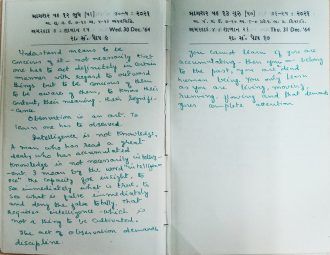 Wed 30 Dec. '64
Understand means to be
Conscious of it - not necessarily that
one has to act definitely in certain
manner with regard to outward
things but to be conscious of them
to be aware of them, to know their
content, their meaning, their signifi-
- cance.
Observation is an art. To
learn one has to observe.
Intelligence is not knowledge.
A man who has read a great
deal, who has accumulated
knowledge is not necessarily intellig-
ent. I mean by the word intellig-
ence the capacity for insight, to
see immediately what is true, to
see what is false immediately
and deny the false totally. That
requires intelligence - which is
not a thing to be cultivated.
The act of observation demands
discipline.
Thu. 31 Dec. '64
You cannot learn if you are
accumulating - then you belong
to the past, you are dead
human being. You only learn
as you are living, moving,
running, flowing and that demands
your complete attention